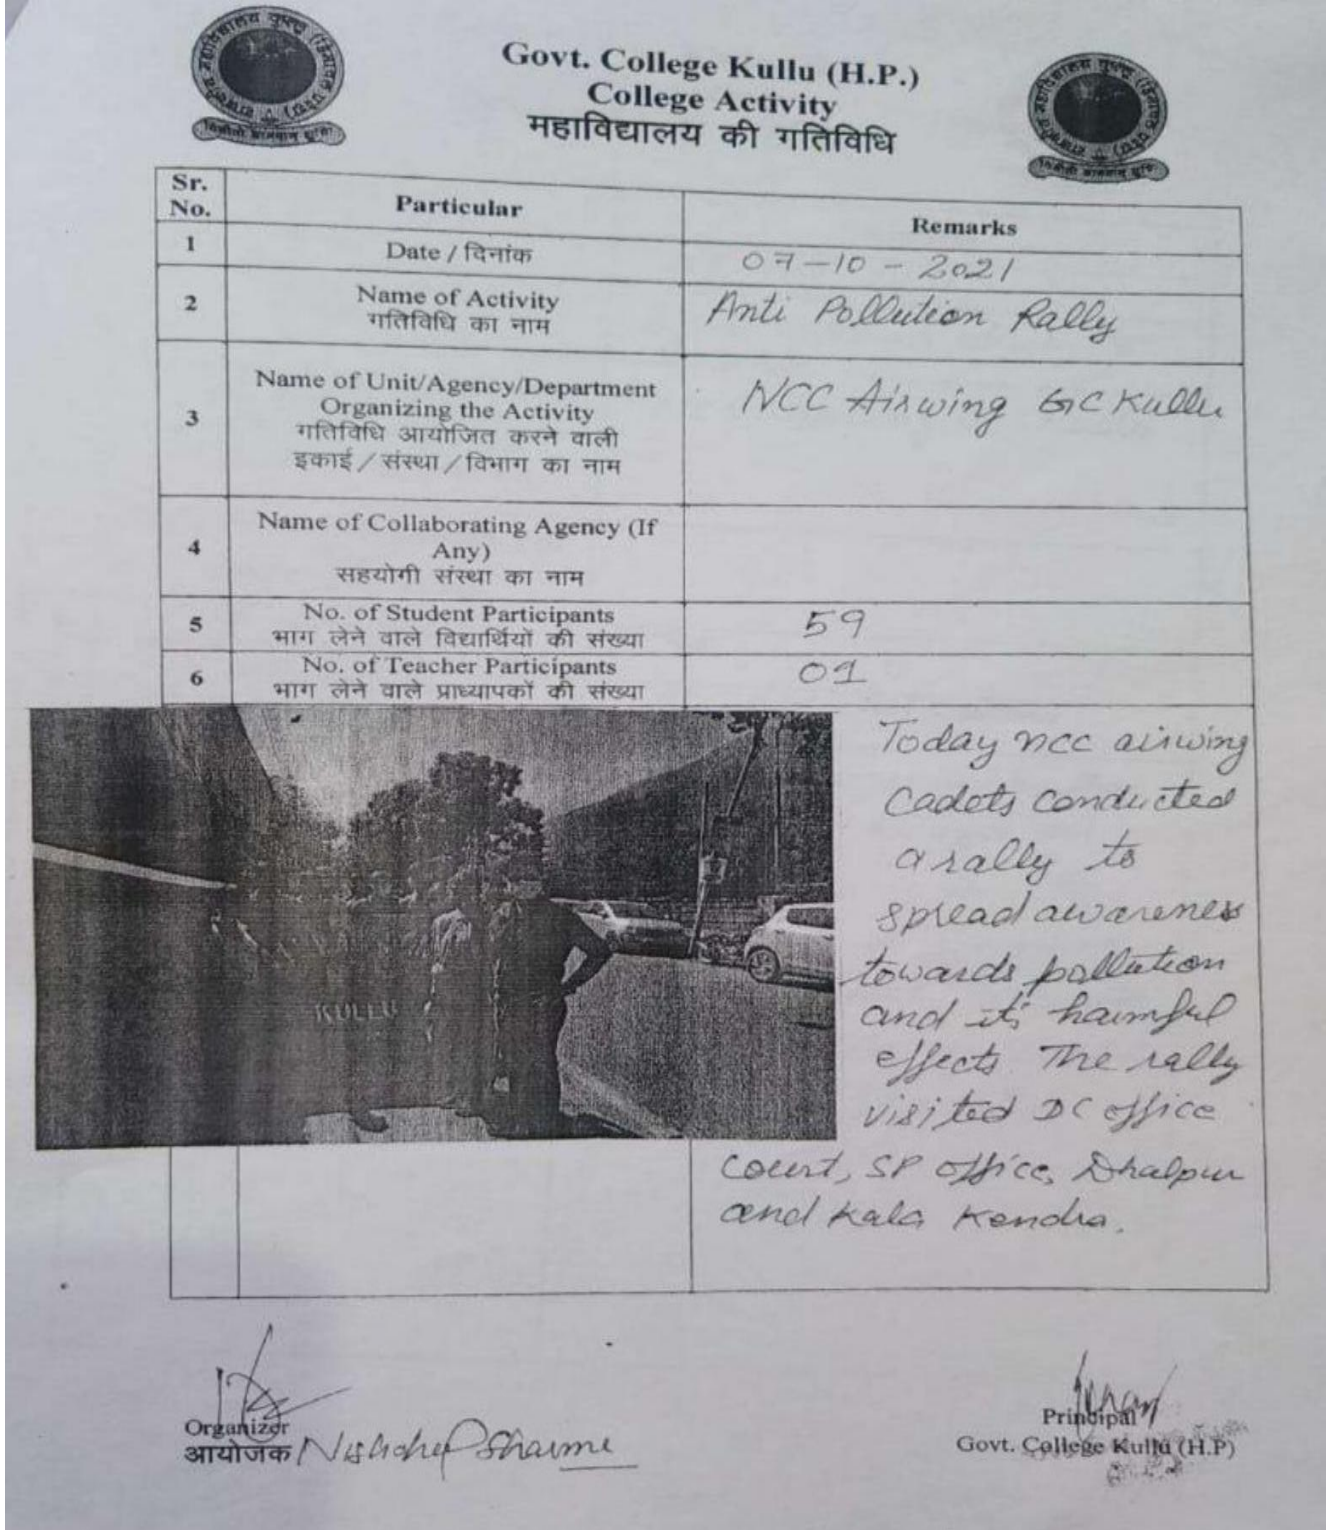 Govt. College Kullu (H.P.)
College Activity
महाविद्यालय की गतिविधि
Sr. No. Particular Remarks
1 Date / दिनांक 07-10-2021
2 Name of Activity Anti Pollution Rally
गतिविधि का नाम
3 Name of Unit/Agency/Department NCC Airwing GC Kullu
Organizing the Activity
गतिविधि आयोजित करने वाली
इकाई / संस्था / विभाग का नाम
4 Name of Collaborating Agency (If
Any)
सहयोगी संस्था का नाम
5 No. of Student Participants 59
भाग लेने वाले विद्यार्थियों की संख्या
6 No. of Teacher Participants 01
भाग लेने वाले प्राध्यापकों की संख्या
Today ncc airwing
Cadets conducted
a rally to
spread awareness
towards pollution
and it's harmful
effects. The rally
visited DC office
Court, SP office, Dhalpur
and Kala Kendra.
KULLU
Organizer
आयोजक Sharma
Principal
Govt. College Kullu (H.P)